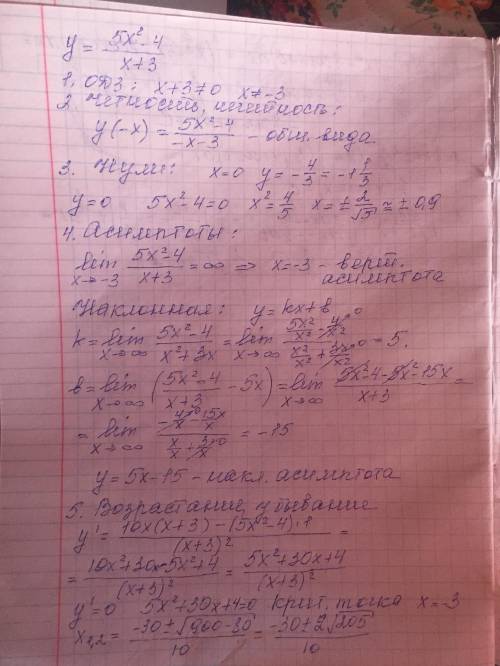 y = (5x²-4)/(x+3)
1. ОДЗ: x+3≠0 x≠-3
2. Четность, нечетность:
y(-x) = (5x²-4)/(-x-3) - общ. вида
3. Нули: x=0 y = -4/3 = -1 1/3
y=0 5x²-4=0 x²=4/5 x=±2/√5 ≈ ±0,9
4. Асимптоты:
lim x→-3 (5x²-4)/(x+3) = ∞ ⇒ x=-3 - верт. асимптота
Наклонная: y=kx+b
k = lim x→∞ (5x²-4)/(x²+3x) = lim x→∞ (5x²/x² - 4/x²)/(x²/x² + 3x/x²) = 5.
b = lim x→∞ ((5x²-4)/(x+3) - 5x) = lim x→∞ (5x²-4-5x²-15x)/(x+3) =
= lim x→∞ (-4/x - 15x/x)/(x/x + 3/x) = -15
y=5x-15 - накл. асимптота
5. Возрастание, убывание
y' = (10x(x+3) - (5x²-4)·1)/(x+3)² =
= (10x²+30x-5x²+4)/(x+3)² = (5x²+30x+4)/(x+3)²
y'=0 5x²+30x+4=0 крит. точка x=-3
x₁,₂ = (-30±√(900-80))/10 = (-30±2√205)/10